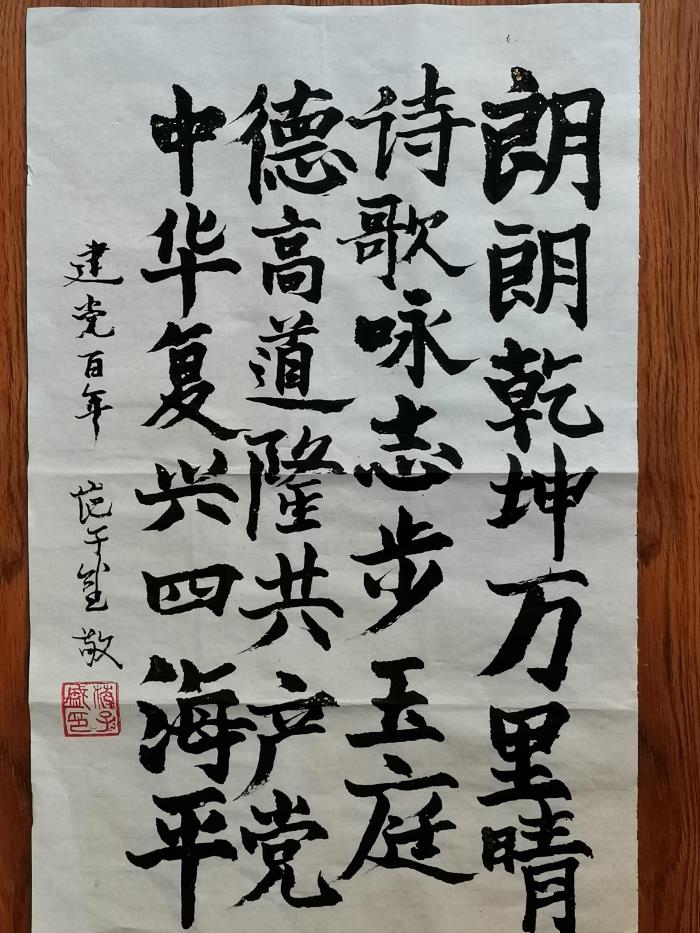 朗朗乾坤万里晴
诗歌咏志步玉庭
德高道隆共产党
中华复兴四海平
建党百年
范子盛 敬
范子盛印